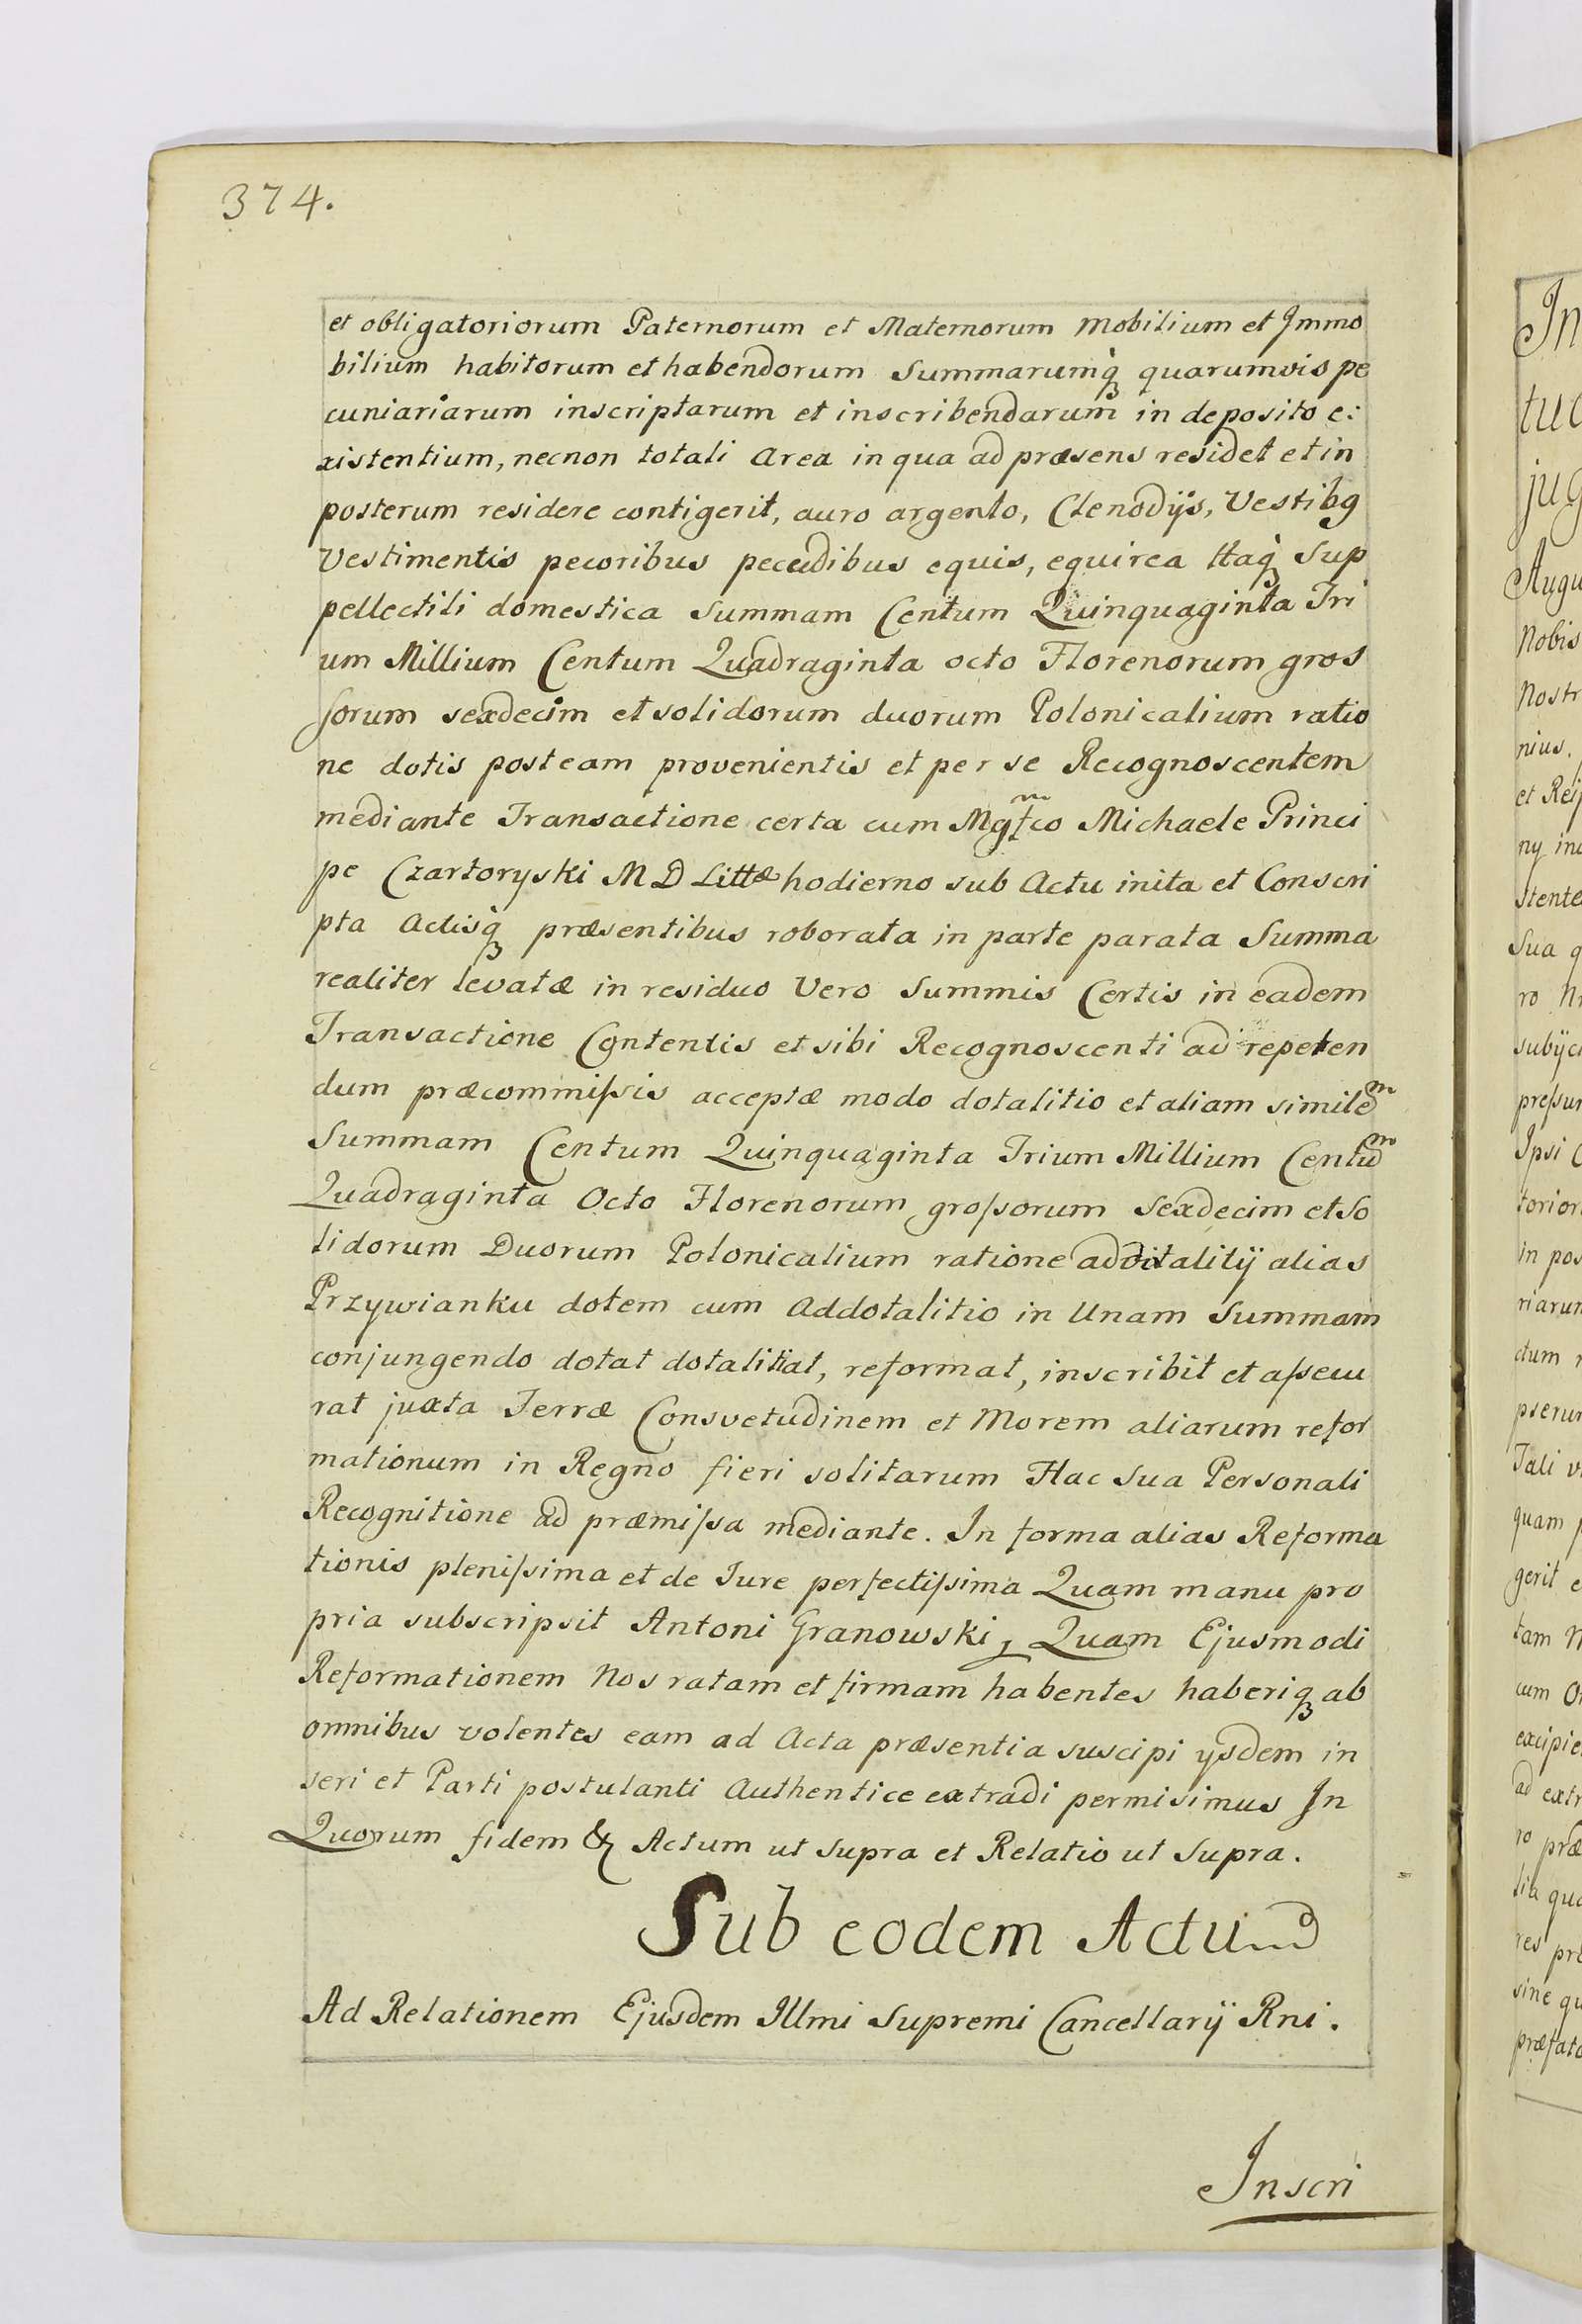 374.
et obligatoriorum Paternorum et Maternorum Mobilium et Immo
bilium habitorum et habendorum Summarumq̀ꝫ quarumvis pe
cuniariarum inscriptarum et inscribendarum in deposito e:
xistentium, necnon totali Area in qua ad præsens residet et in
posterum residere contigerit, auro argento, Clenodijs, Vestibg
Vestimentis pecoribus pecudibus equis, equirea ttaq̀ꝫ Sup
pellectili domestica Summam Centum Quinquaginta Tri
um Millium Centum Quadraginta octo Florenorum gros
sorum sexdecim et solidorum duorum Polonicalium ratio
ne dotis post eam provenientis et per se Recognoscentem
mediante Transactione certa cum Mgfco Michaele Princi
pe Czartoryski M D Littæ hodierno sub Actu inita et Conscri
pta Actisq̀ꝫ præsentibus roborata in parte parata Summa
realiter levatæ in residuo Vero Summis Certis in eadem
Transactione Contentis et sibi Recognoscenti ad repeten
dum præcommiſsis acceptæ modo dotalitio et aliam simile͞m
Summam Centum Quinquaginta Trium Millium Centu͞m
Quadraginta Octo Florenorum groſsorum Sexdecim et So
lidorum Duorum Polonicalium ratione addotalitij alias
Przywianku dotem cum Addotalitio in Unam Summam
conjungendo dotat dotalitiat, reformat, inscribit et aſsecu
rat juxta Terræ Consvetudinem et Morem aliarum refor
mationum in Regno fieri solitarum Hac Sua Personali
Recognitione ad præmiſsa mediante. In forma alias Reforma
tionis pleniſsima et de Iure perfectiſsima Quam manu pro
pria subscripsit Antoni Granowski, Quam Ejusmodi
Reformationem Nos ratam et firmam habentes haberiqꝫ ab
omnibus volentes eam ad Acta præsentia suscipi ysdem in
seri et Parti postulanti Authentice extradi permisimus In
Quorum fidem & Actum ut Supra et Relatio ut Supra.
Sub eodem Actu
Ad Relationem Ejusdem Illmi Supremi Cancellarij Rni.
Inscri
In
tuc
jug
Augu
Nobis
Nostr
nius.
et Reip
ny inc
stente
Sua q
subijc
preſsur
Ipsi
torior
in pos
riarum
ctum
pserun
Tali v
quam
gerit e
tam N
cum
excipie
ad extr
ro præ
tia qua
res pr
sine qu
præfato